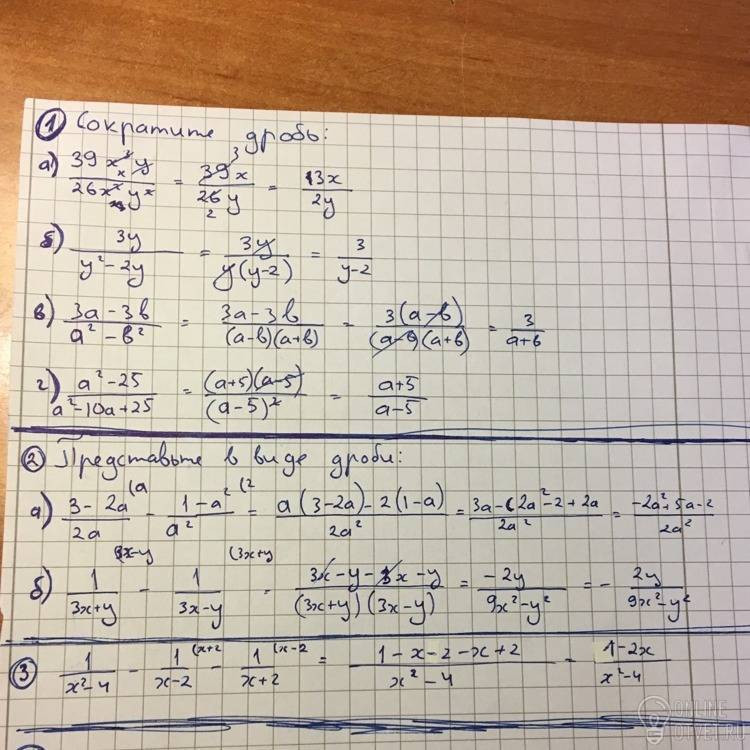 ① Сократите дробь:
а) 39x³y / 26x²y² = 39x / 26y = 13x / 2y
б) 3y / (y²-2y) = 3y / y(y-2) = 3 / (y-2)
в) (3a-3b) / (a²-b²) = (3a-3b) / (a-b)(a+b) = 3(a-b) / (a-b)(a+b) = 3 / (a+b)
г) (a²-25) / (a²-10a+25) = (a+5)(a-5) / (a-5)² = (a+5) / (a-5)
② Представьте в виде дроби:
а) (3-2a) / 2a (a - (1-a²) / a² (2 = (a(3-2a)-2(1-a)) / 2a² = (3a-(2a²-2+2a) / 2a² = (-2a²+5a-2) / 2a²
б) 1 / (3x+y) (3x-y - 1 / (3x-y) (3x+y = (3x-y-3x-y) / (3x+y)(3x-y) = -2y / (9x²-y²) = - 2y / (9x²-y²)
③ 1 / (x²-4) - 1 / (x-2) (x+2 - 1 / (x+2) (x-2 = (1-x-2-x+2) / (x²-4) = (1-2x) / (x²-4)
ONLINE
OTVET.RU